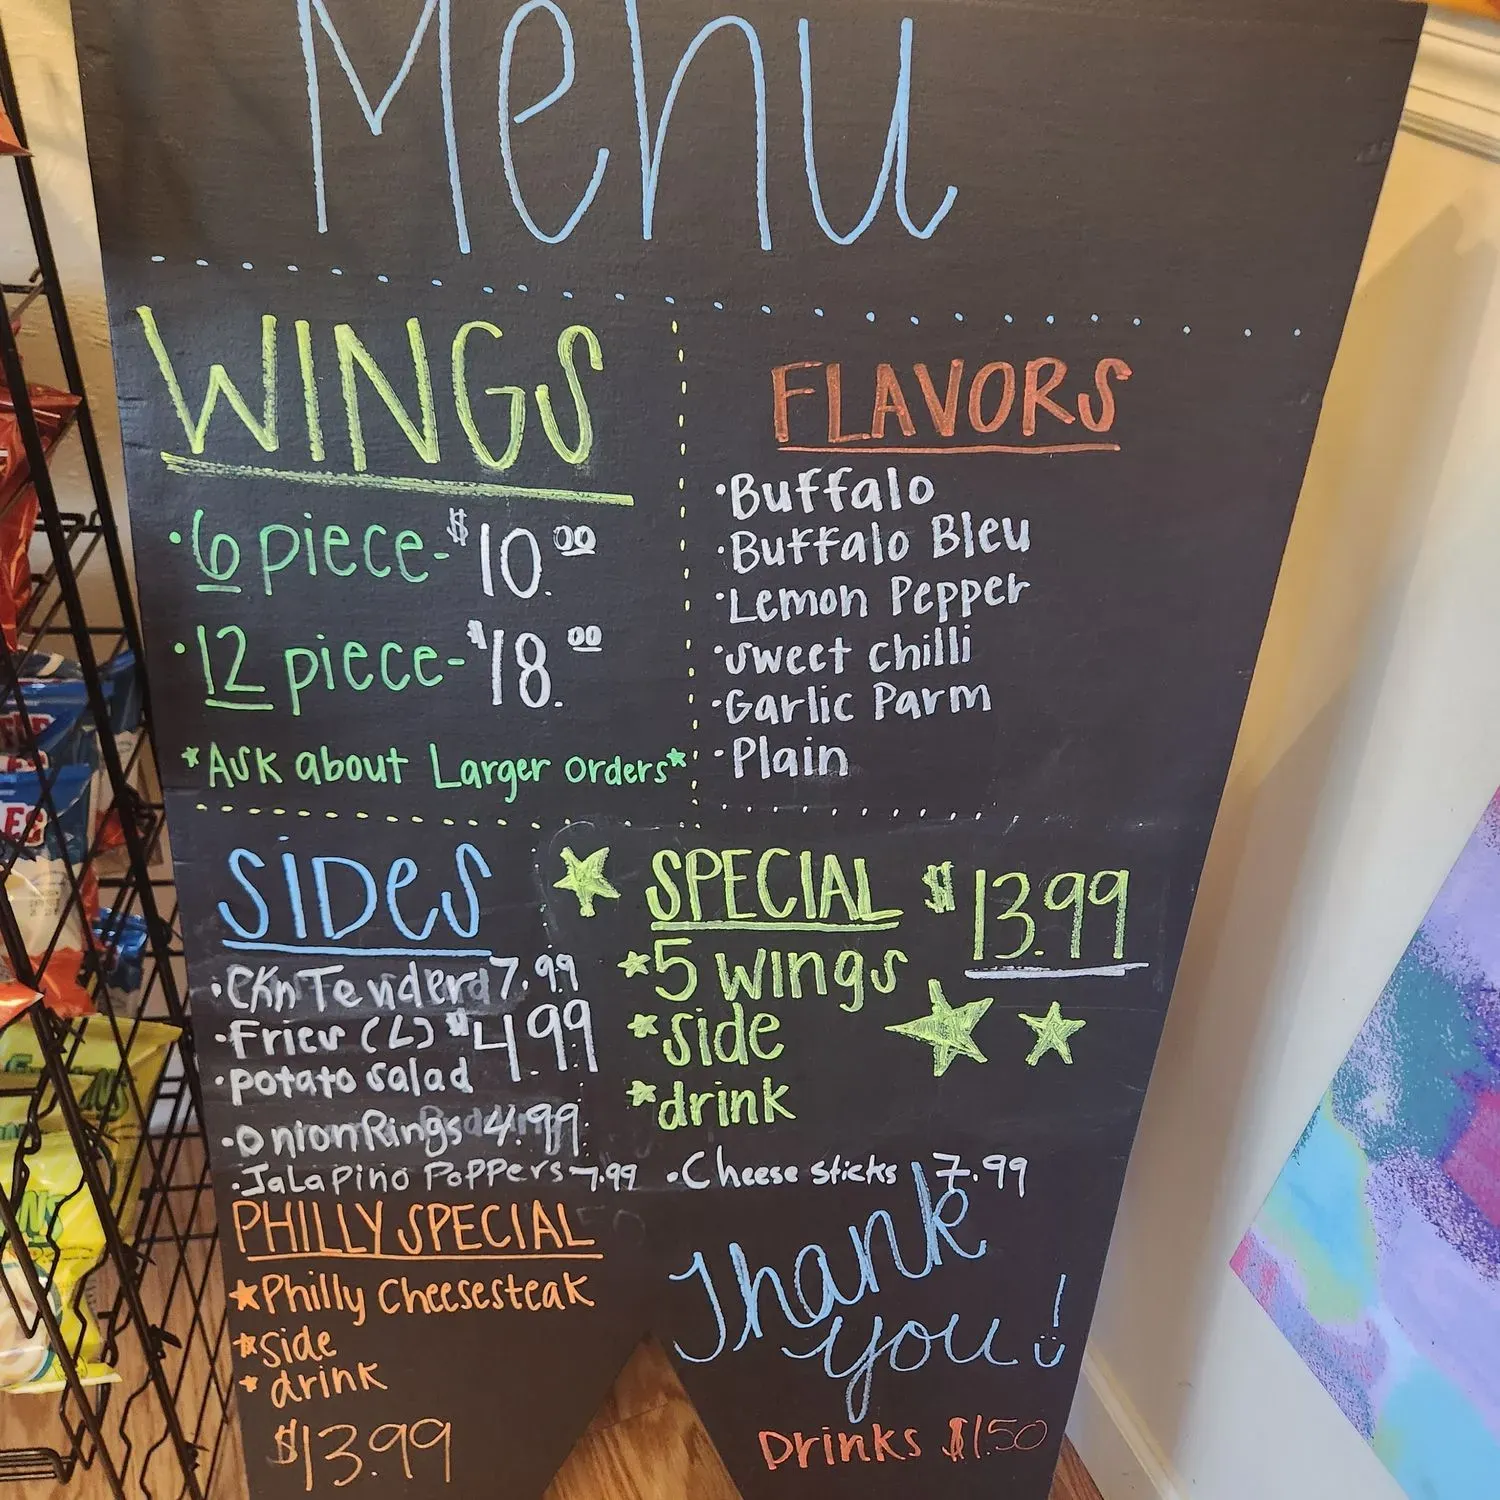 Menu
WINGS
·6 piece-$10.00
·12 piece-$18.00
*Ask about Larger orders*
FLAVORS
·Buffalo
·Buffalo Bleu
·Lemon Pepper
·sweet chilli
·Garlic Parm
·Plain
SIDES
·CKn Tenders 7.99
·Fries (L) $4.99
·potato salad
·Onion Rings 4.99
·JaLaPino PoPPers 7.99
·Cheese sticks 7.99
SPECIAL $13.99
*5 wings
*side
*drink
PHILLY SPECIAL
*Philly Cheesesteak
*side
*drink
$13.99
Thank
you!
Drinks $1.50